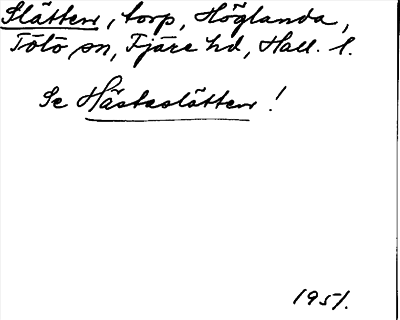 Slätten, torp, Höglanda,
Tölö sn, Fjäre hd, Hall. l.
Se Hästaslätten !
1951.